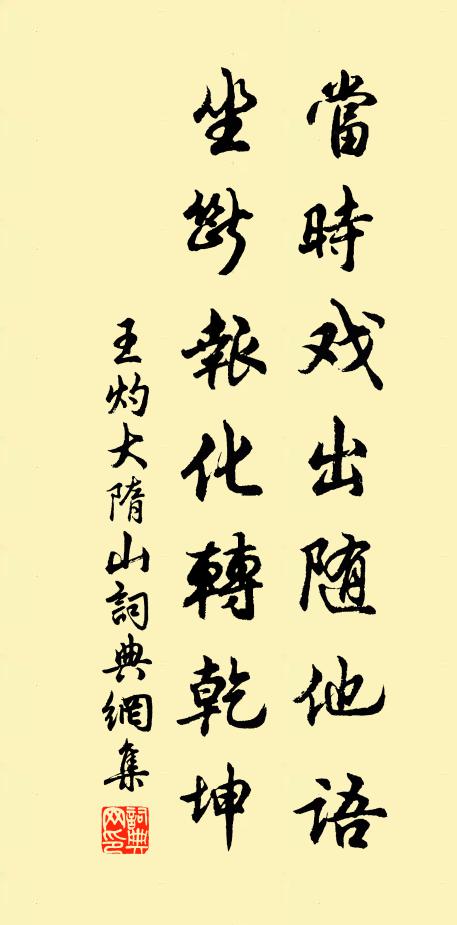 當時戏出随他語
坐断報化轉乾坤
王灼大隋山詞典網集
詞典网印